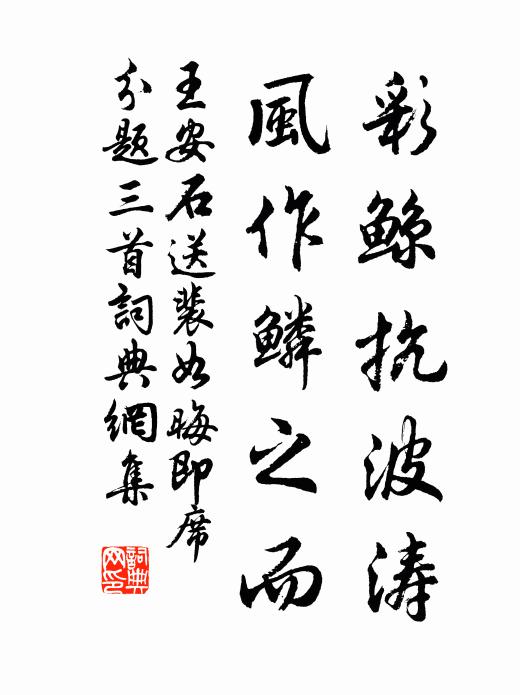 彩鲸抗波涛
風作鱗之而
王安石送裴如晦即席
分題三首詞典網集
詞典網印